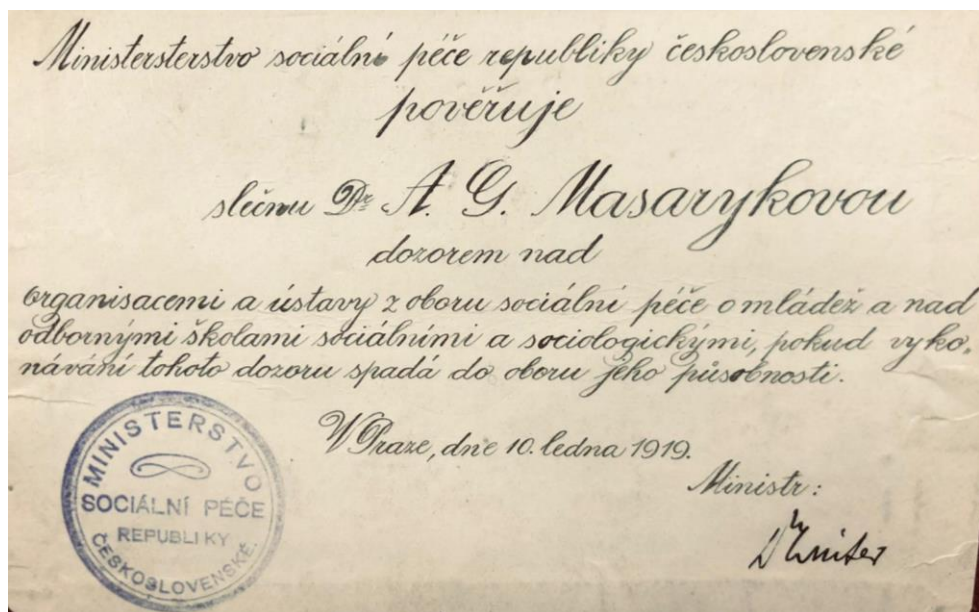 Ministersterstvo sociální péče republiky československé
pověřuje
slečnu Dr. A. G. Masarykovou
dozorem nad
organisacemi a ústavy z oboru sociální péče o mládež a nad
odbornými školami sociálními a sociologickými, pokud vyko-
návání tohoto dozoru spadá do oboru jeho působnosti.
V Praze, dne 10. ledna 1919.
Ministr:
MINISTERSTVO
SOCIÁLNÍ PÉČE
REPUBLIKY
ČESKOSLOVENSKÉ.